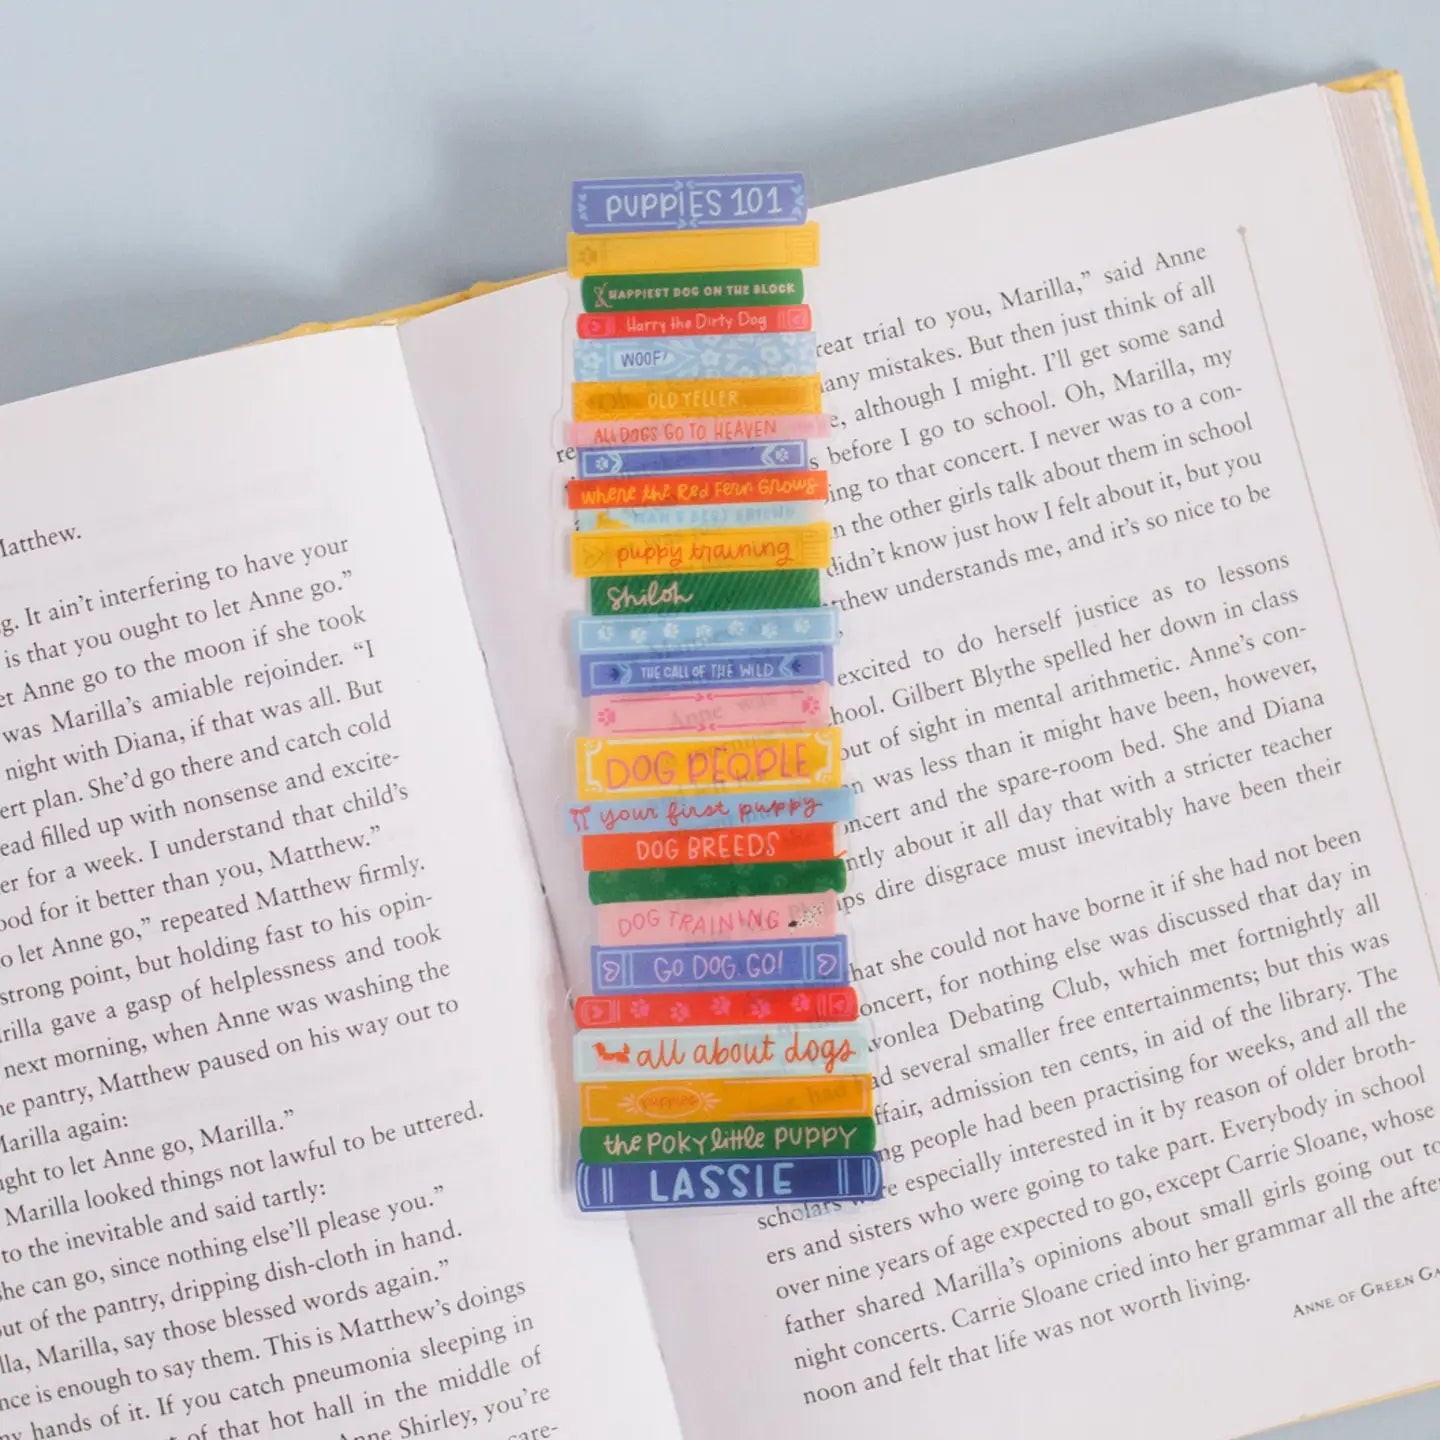 PUPPIES 101
HAPPIEST DOG ON THE BLOCK
Harry the Dirty Dog
WOOF!
OLD YELLER
ALL DOGS GO TO HEAVEN
Where the Red Fern Grows
MAN'S BEST FRIEND
puppy training
Shiloh
THE CALL OF THE WILD
DOG PEOPLE
your first puppy
DOG BREEDS
DOG TRAINING
GO DOG, GO!
all about dogs
puppies
the POKY little PUPPY
LASSIE
Matthew.
g. It ain't interfering to have your
is that you ought to let Anne go.”
et Anne go to the moon if she took
was Marilla's amiable rejoinder. “I
night with Diana, if that was all. But
ert plan. She'd go there and catch cold
ead filled up with nonsense and excite-
er for a week. I understand that child's
ood for it better than you, Matthew.”
o let Anne go,” repeated Matthew firmly.
strong point, but holding fast to his opin-
rilla gave a gasp of helplessness and took
next morning, when Anne was washing the
e pantry, Matthew paused on his way out to
Marilla again:
ught to let Anne go, Marilla.”
Marilla looked things not lawful to be uttered.
to the inevitable and said tartly:
she can go, since nothing else'll please you.”
out of the pantry, dripping dish-cloth in hand.
lla, Marilla, say those blessed words again.”
nce is enough to say them. This is Matthew's doings
my hands of it. If you catch pneumonia sleeping in
of that hot hall in the middle of
Anne Shirley, you're
care-
reat trial to you, Marilla,” said Anne
any mistakes. But then just think of all
e, although I might. I'll get some sand
s before I go to school. Oh, Marilla, my
ing to that concert. I never was to a con-
n the other girls talk about them in school
didn't know just how I felt about it, but you
thew understands me, and it's so nice to be
excited to do herself justice as to lessons
hool. Gilbert Blythe spelled her down in class
out of sight in mental arithmetic. Anne's con-
n was less than it might have been, however,
oncert and the spare-room bed. She and Diana
ntly about it all day that with a stricter teacher
ps dire disgrace must inevitably have been their
hat she could not have borne it if she had not been
oncert, for nothing else was discussed that day in
vonlea Debating Club, which met fortnightly all
ad several smaller free entertainments; but this was
ffair, admission ten cents, in aid of the library. The
ng people had been practising for weeks, and all the
scholars were especially interested in it by reason of older broth-
ers and sisters who were going to take part. Everybody in school
over nine years of age expected to go, except Carrie Sloane, whose
father shared Marilla's opinions about small girls going out to
night concerts. Carrie Sloane cried into her grammar all the after
noon and felt that life was not worth living.
ANNE OF GREEN GA